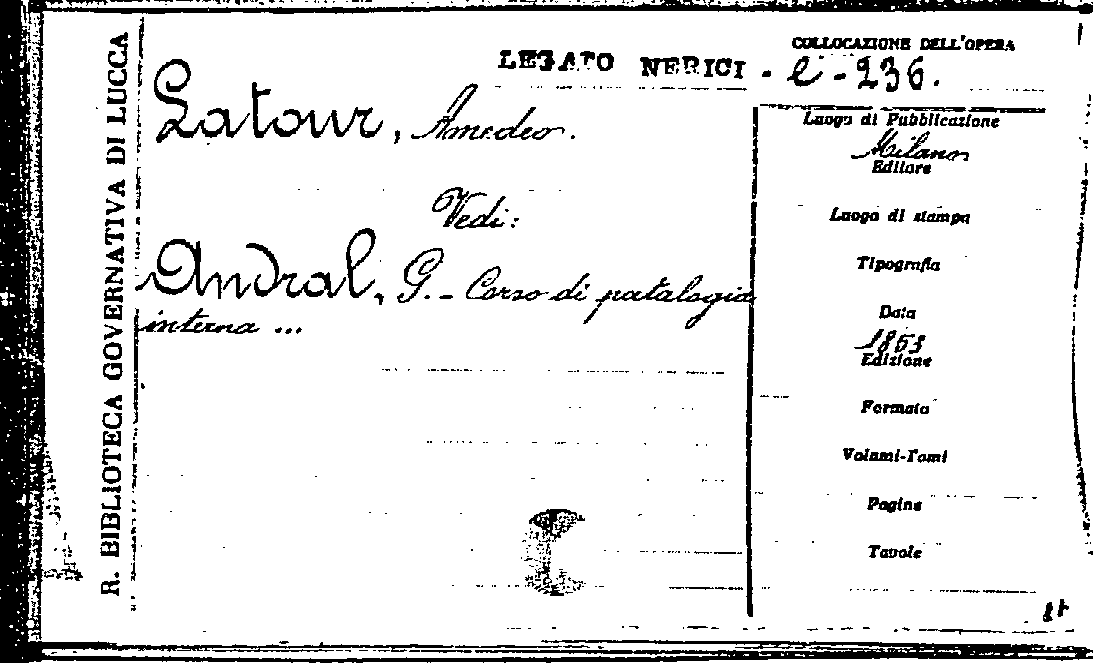 R. BIBLIOTECA GOVERNATIVA DI LUCCA
COLLOCAZIONE DELL'OPERA
LEGATO NERICI - e - 236.
Latour, Amedeo.
Vedi:
Andral, G. - Corso di patologia
interna ...
Luogo di Pubblicazione
Milano
Editore
Luogo di stampa
Tipografia
Data
1853
Edizione
Formato
Volumi-Tomi
Pagine
Tavole